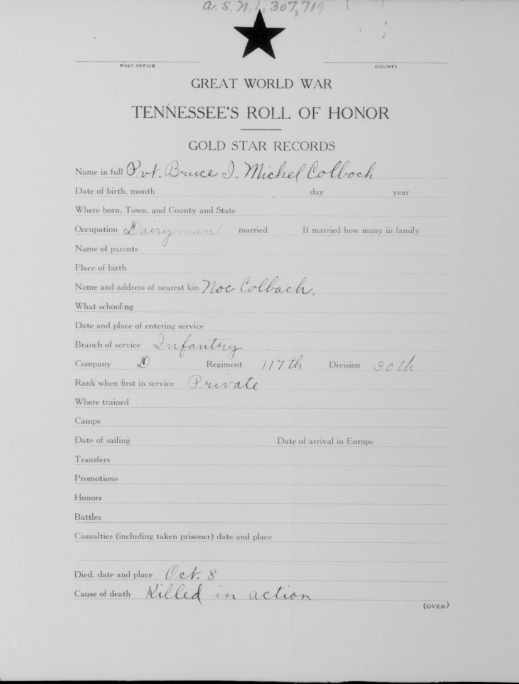 A.S.N. 1,307,719
POST OFFICE COUNTY
GREAT WORLD WAR
TENNESSEE'S ROLL OF HONOR
GOLD STAR RECORDS
Name in full Pvt. Bruce I. Michel Colboch
Date of birth, month day year
Where born, Town, and County and State
Occupation Dairyman married If married how many in family
Name of parents
Place of birth
Name and address of nearest kin Noc Colbach.
What schooling
Date and place of entering service
Branch of service Infantry
Company D Regiment 117th Division 30th
Rank when first in service Private
Where trained
Camps
Date of sailing Date of arrival in Europe
Transfers
Promotions
Honors
Battles
Casualties (including taken prisoner) date and place
Died, date and place Oct. 8
Cause of death Killed in action
(OVER)